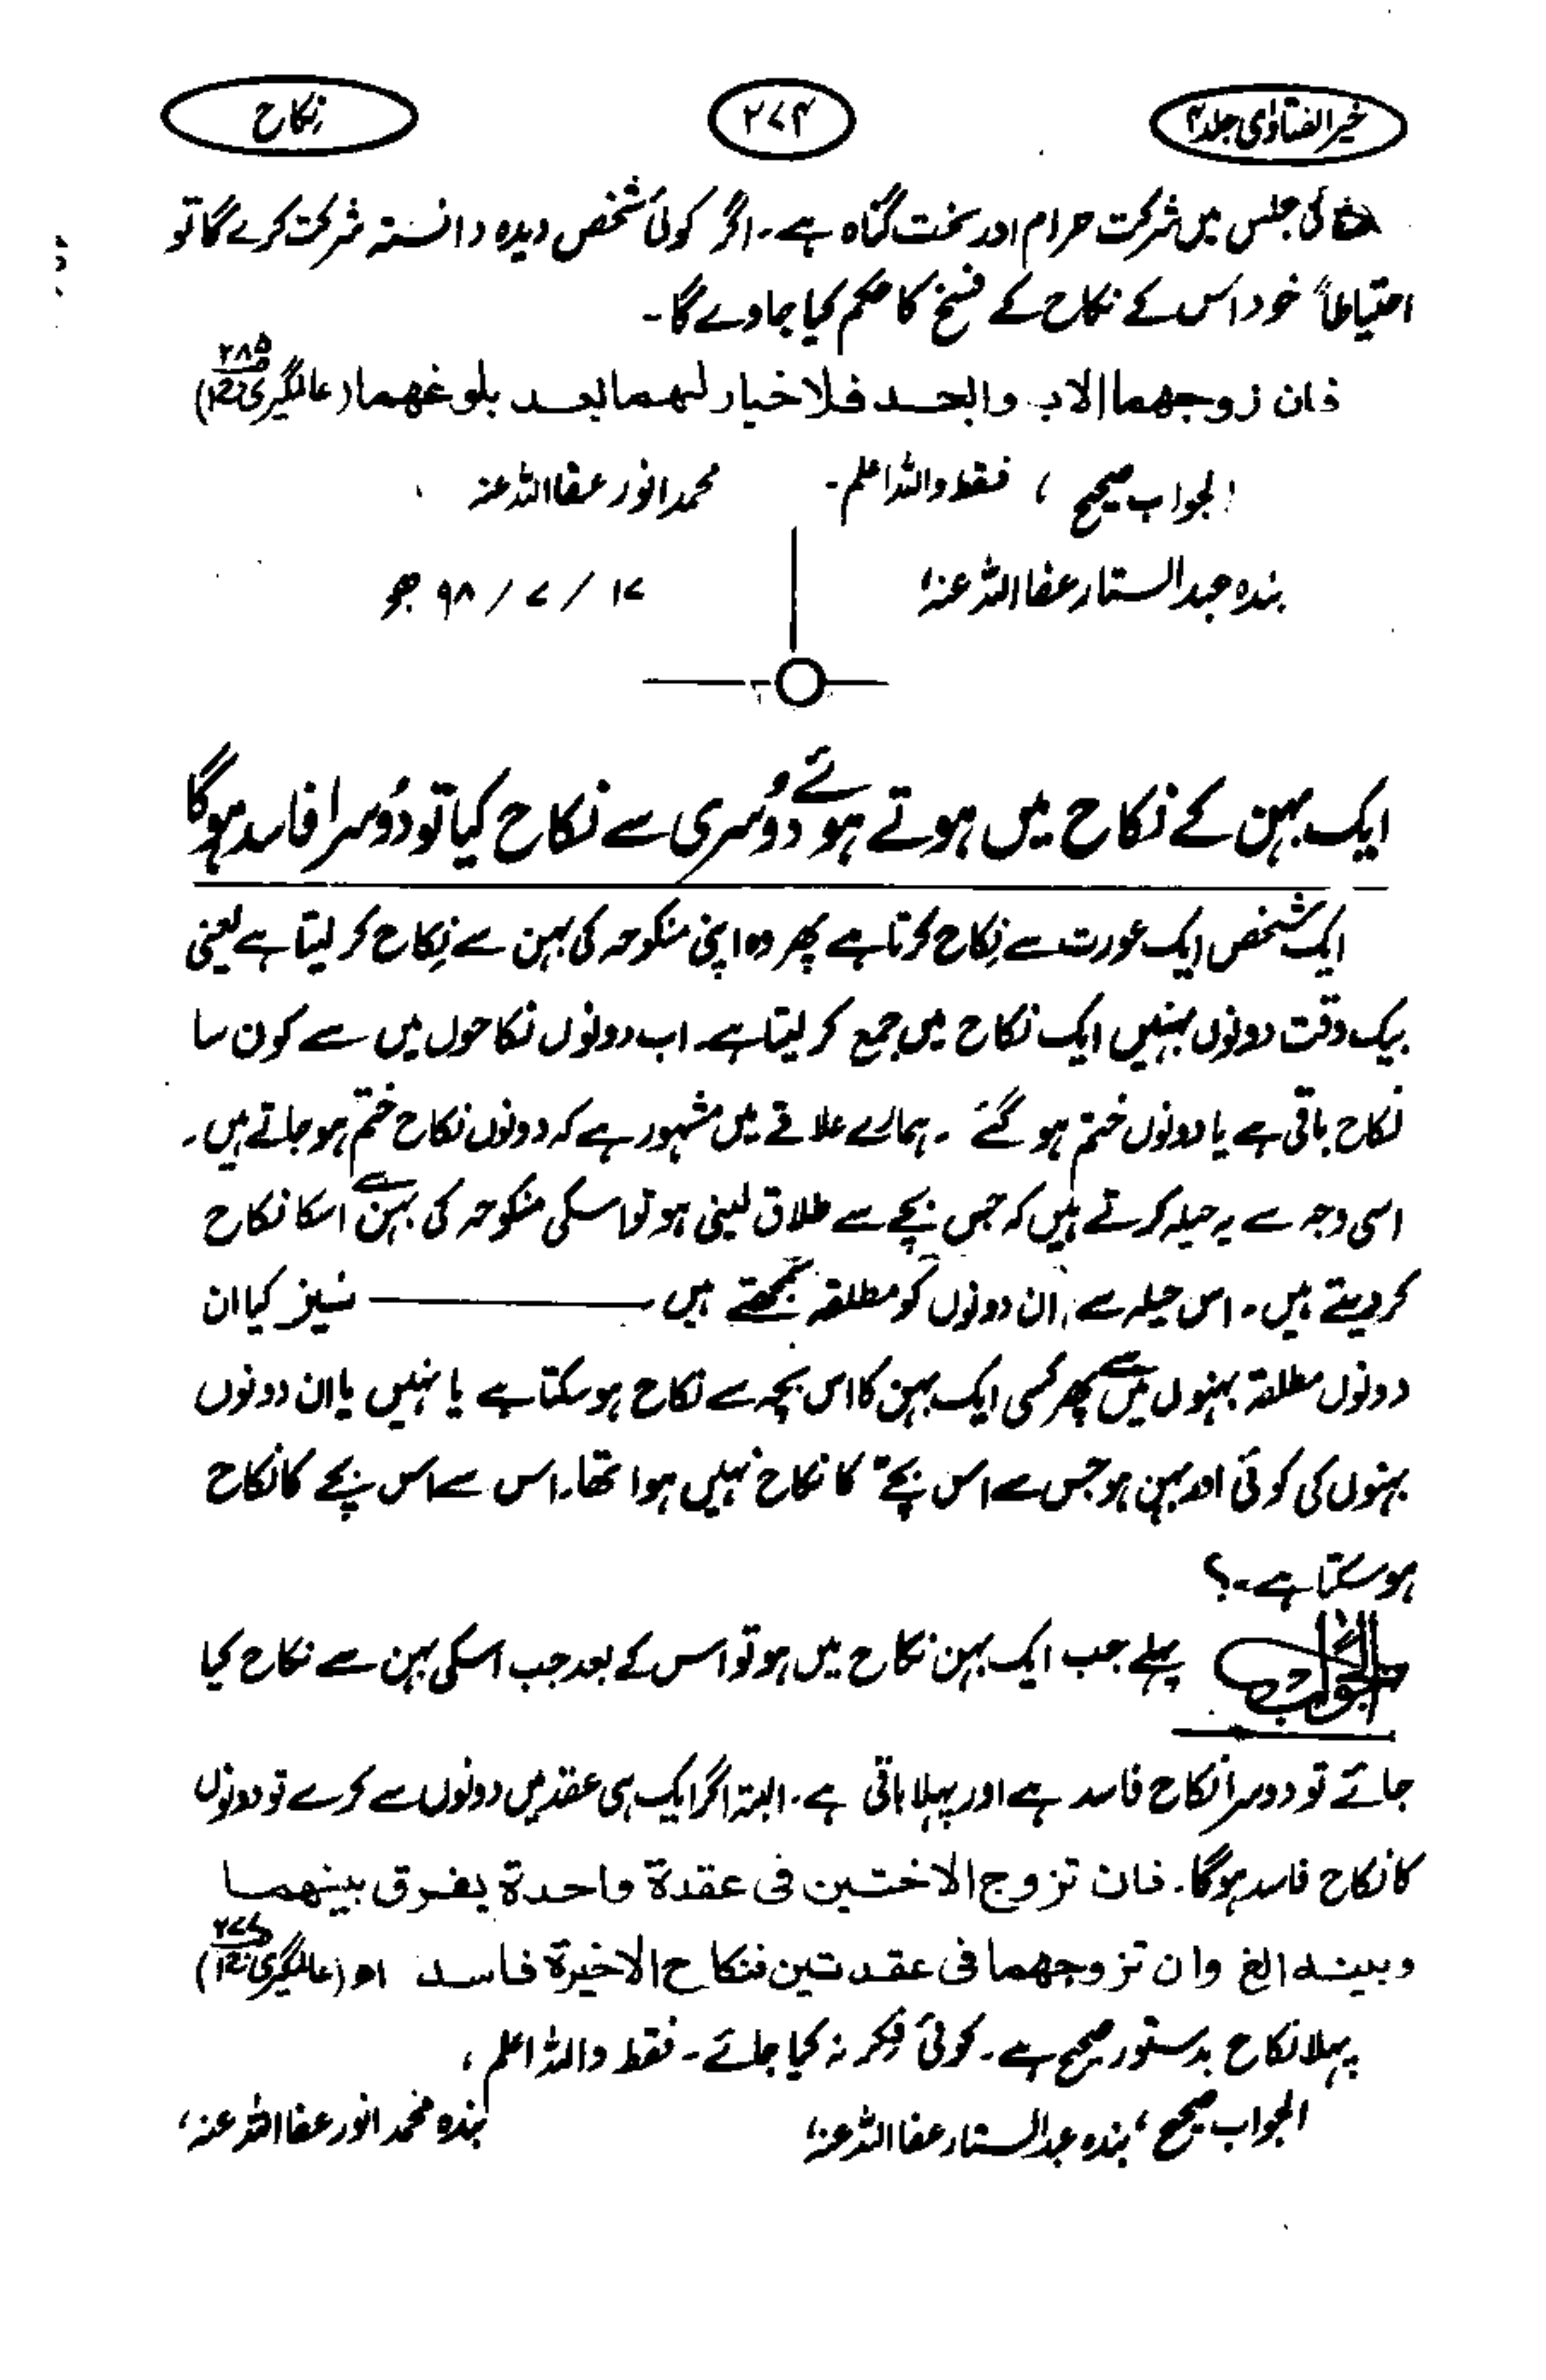 خیر الفتاوٰی جلد ۴
۲۷۴
نکاح
کی مجلس میں شرکت حرام اور سخت گناہ ہے ۔ اگر کوئی شخص دیدہ دانستہ شرکت کرے گا تو
احتیاطاً خود اس کے نکاح کے فسخ کا حکم کیا جاوے گا ۔
فان زوجهما الاب والجد فلا خيار لهما بعد بلوغهما (عالمگیری ج۱ ص۲۸۵)
الجواب صحیح ، فقط واللہ اعلم ۔ محمد انور عفا اللہ عنہ
بندہ عبد الستار عفا اللہ عنہ، ۱۷ / ۷ / ۹۸ ھ
ایک بہن کے نکاح میں ہوتے ہوئے دوسری سے نکاح کیا تو دُوسرا فاسد ہوگا
ایک شخص ایک عورت سے نکاح کرتا ہے پھر وہ اپنی منکوحہ کی بہن سے نکاح کر لیتا ہے یعنی
بیک وقت دونوں بہنیں ایک نکاح میں جمع کر لیتا ہے۔ اب دونوں نکاحوں میں سے کون سا
نکاح باقی ہے یا دونوں ختم ہو گئے ۔ ہمارے علاقے میں مشہور ہے کہ دونوں نکاح ختم ہو جاتے ہیں ۔
اسی وجہ سے یہ حیلہ کرتے ہیں کہ جس بچے سے طلاق لینی ہو تو اسکی منکوحہ کی بہن سے اسکا نکاح
کر دیتے ہیں ۔ اس حیلہ سے ان دونوں کو مطلقہ سمجھتے ہیں ۔ ــــــــ نیز کیا ان
دونوں مطلقہ بہنوں میں سے پھر کسی ایک بہن کا اس بچہ سے نکاح ہو سکتا ہے یا نہیں یا ان دونوں
بہنوں کی کوئی اور بہن ہو جس سے اس بچے کا نکاح نہیں ہوا تھا۔ اس سے اس بچے کا نکاح
ہو سکتا ہے ۔؟
الجواب پہلے جب ایک بہن نکاح میں ہو تو اس کے بعد جب اسکی بہن سے نکاح کیا
جائے تو دوسرا نکاح فاسد ہے اور پہلا باقی ہے ۔ البتہ اگر ایک ہی عقد میں دونوں سے کرے تو دونوں
کا نکاح فاسد ہوگا ۔ فان تزوج الاختين فى عقدة واحدة يفرق بينهما
وبينه الخ وان تزوجهما فى عقدتين فنكاح الاخيرة فاسد اھ (عالمگیری ج۱ ص۲۷۷)
پہلا نکاح بدستور صحیح ہے ۔ کوئی فکر نہ کیا جائے ۔ فقط واللہ اعلم ،
الجواب صحیح ، بندہ عبد الستار عفا اللہ عنہ، بندہ محمد انور عفا اللہ عنہ،